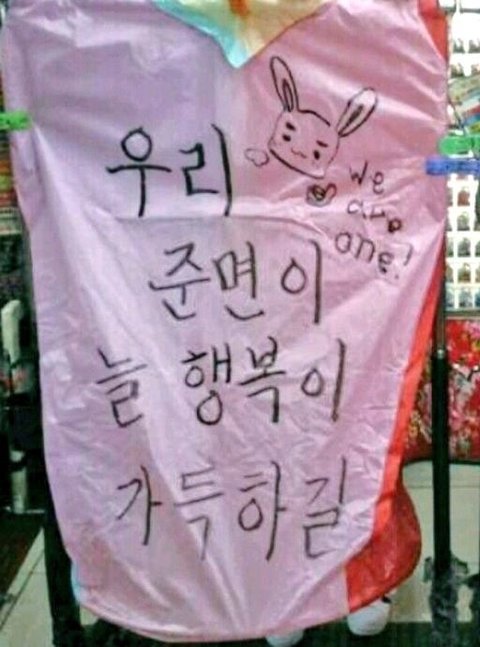 우리
we
are
one!
준면이
늘 행복이
가득하길